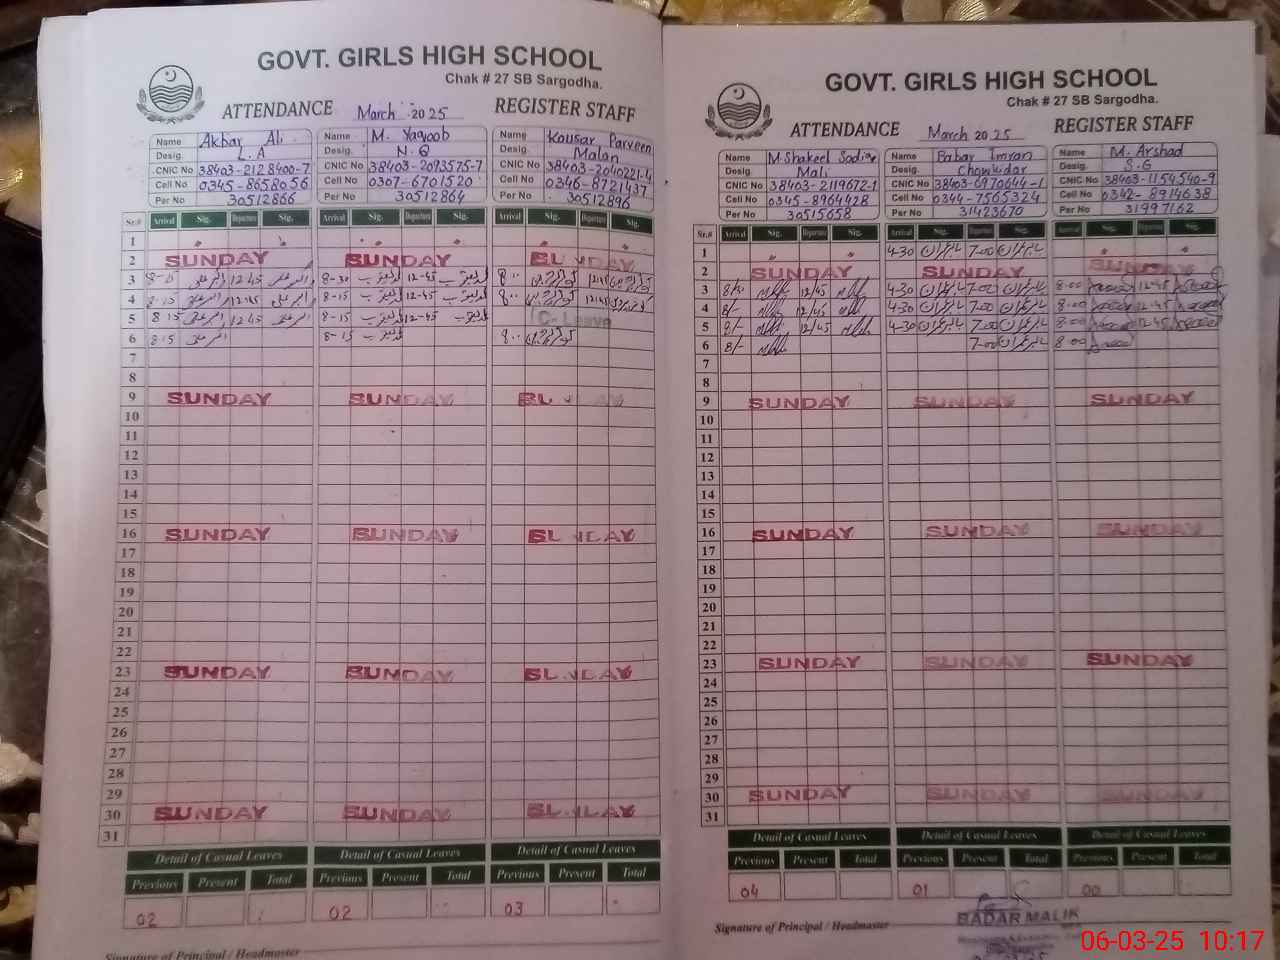 GOVT. GIRLS HIGH SCHOOL
Chak # 27 SB Sargodha.
ATTENDANCE March 2025 REGISTER STAFF
Name Akbar Ali
Desig. L.A
CNIC No 38403-2128400-7
Cell No 0345-8658056
Per No 30512866
Name M. Yaqoob
Desig. N.Q
CNIC No 38403-2093575-7
Cell No 0307-6701520
Per No 30512864
Name Kousar Parveen
Desig. Malan
CNIC No 38403-2040221-4
Cell No 0346-8721437
Per No 30512896
Sr.# Arrival Sig. Departure Sig. Arrival Sig. Departure Sig. Arrival Sig. Departure Sig.
1
2 SUNDAY SUNDAY SUNDAY
3 8-15 12-45 8-30 12-45 8.00 12:45
4 8-15 12-45 8-15 12-45 8.00 12:45
5 8-15 12-45 8-15 12-45 C-Leave
6 8-15 8-15 8.00
7
8
9 SUNDAY SUNDAY
10
11
12
13
14
15
16 SUNDAY SUNDAY
17
18
19
20
21
22
23 SUNDAY SUNDAY
24
25
26
27
28
29
30 SUNDAY SUNDAY
31
Detail of Casual Leaves Detail of Casual Leaves Detail of Casual Leaves
Previous Present Total Previous Present Total Previous Present Total
02 02 03
Signature of Principal / Headmaster
GOVT. GIRLS HIGH SCHOOL
Chak # 27 SB Sargodha.
ATTENDANCE March 2025 REGISTER STAFF
Name M Shakeel Sadiq
Desig. Mali
CNIC No 38403-2119672-1
Cell No 0345-8964428
Per No 30515658
Name Babar Imran
Desig. Chowkidar
CNIC No 38403-6970644-1
Cell No 0344-7565324
Per No 31423670
Name M. Arshad
Desig. S.G
CNIC No 38403-1154540-9
Cell No 0342-8914638
Per No 31997162
Sr.# Arrival Sig. Departure Sig. Arrival Sig. Departure Sig. Arrival Sig. Departure Sig.
1 4-30 بابر عمران 7-00 بابر عمران
2 SUNDAY SUNDAY SUNDAY
3 12/45 4-30 بابر عمران 7-00 بابر عمران 8-00 12-45
4 8/- 12/45 4-30 بابر عمران 7-00 بابر عمران 8-00 12-45
5 8/- 12/45 4-30 بابر عمران 7-00 بابر عمران 8-00 12-45
6 8/- 7-00 بابر عمران 8-00
7
8
9 SUNDAY SUNDAY SUNDAY
10
11
12
13
14
15
16 SUNDAY SUNDAY SUNDAY
17
18
19
20
21
22
23 SUNDAY SUNDAY SUNDAY
24
25
26
27
28
29
30 SUNDAY SUNDAY SUNDAY
31
Detail of Casual Leaves Detail of Casual Leaves Detail of Casual Leaves
Previous Present Total Previous Present Total Previous Present Total
04 01 00
Signature of Principal / Headmaster
BADAR MALIK
06-03-25 10:17